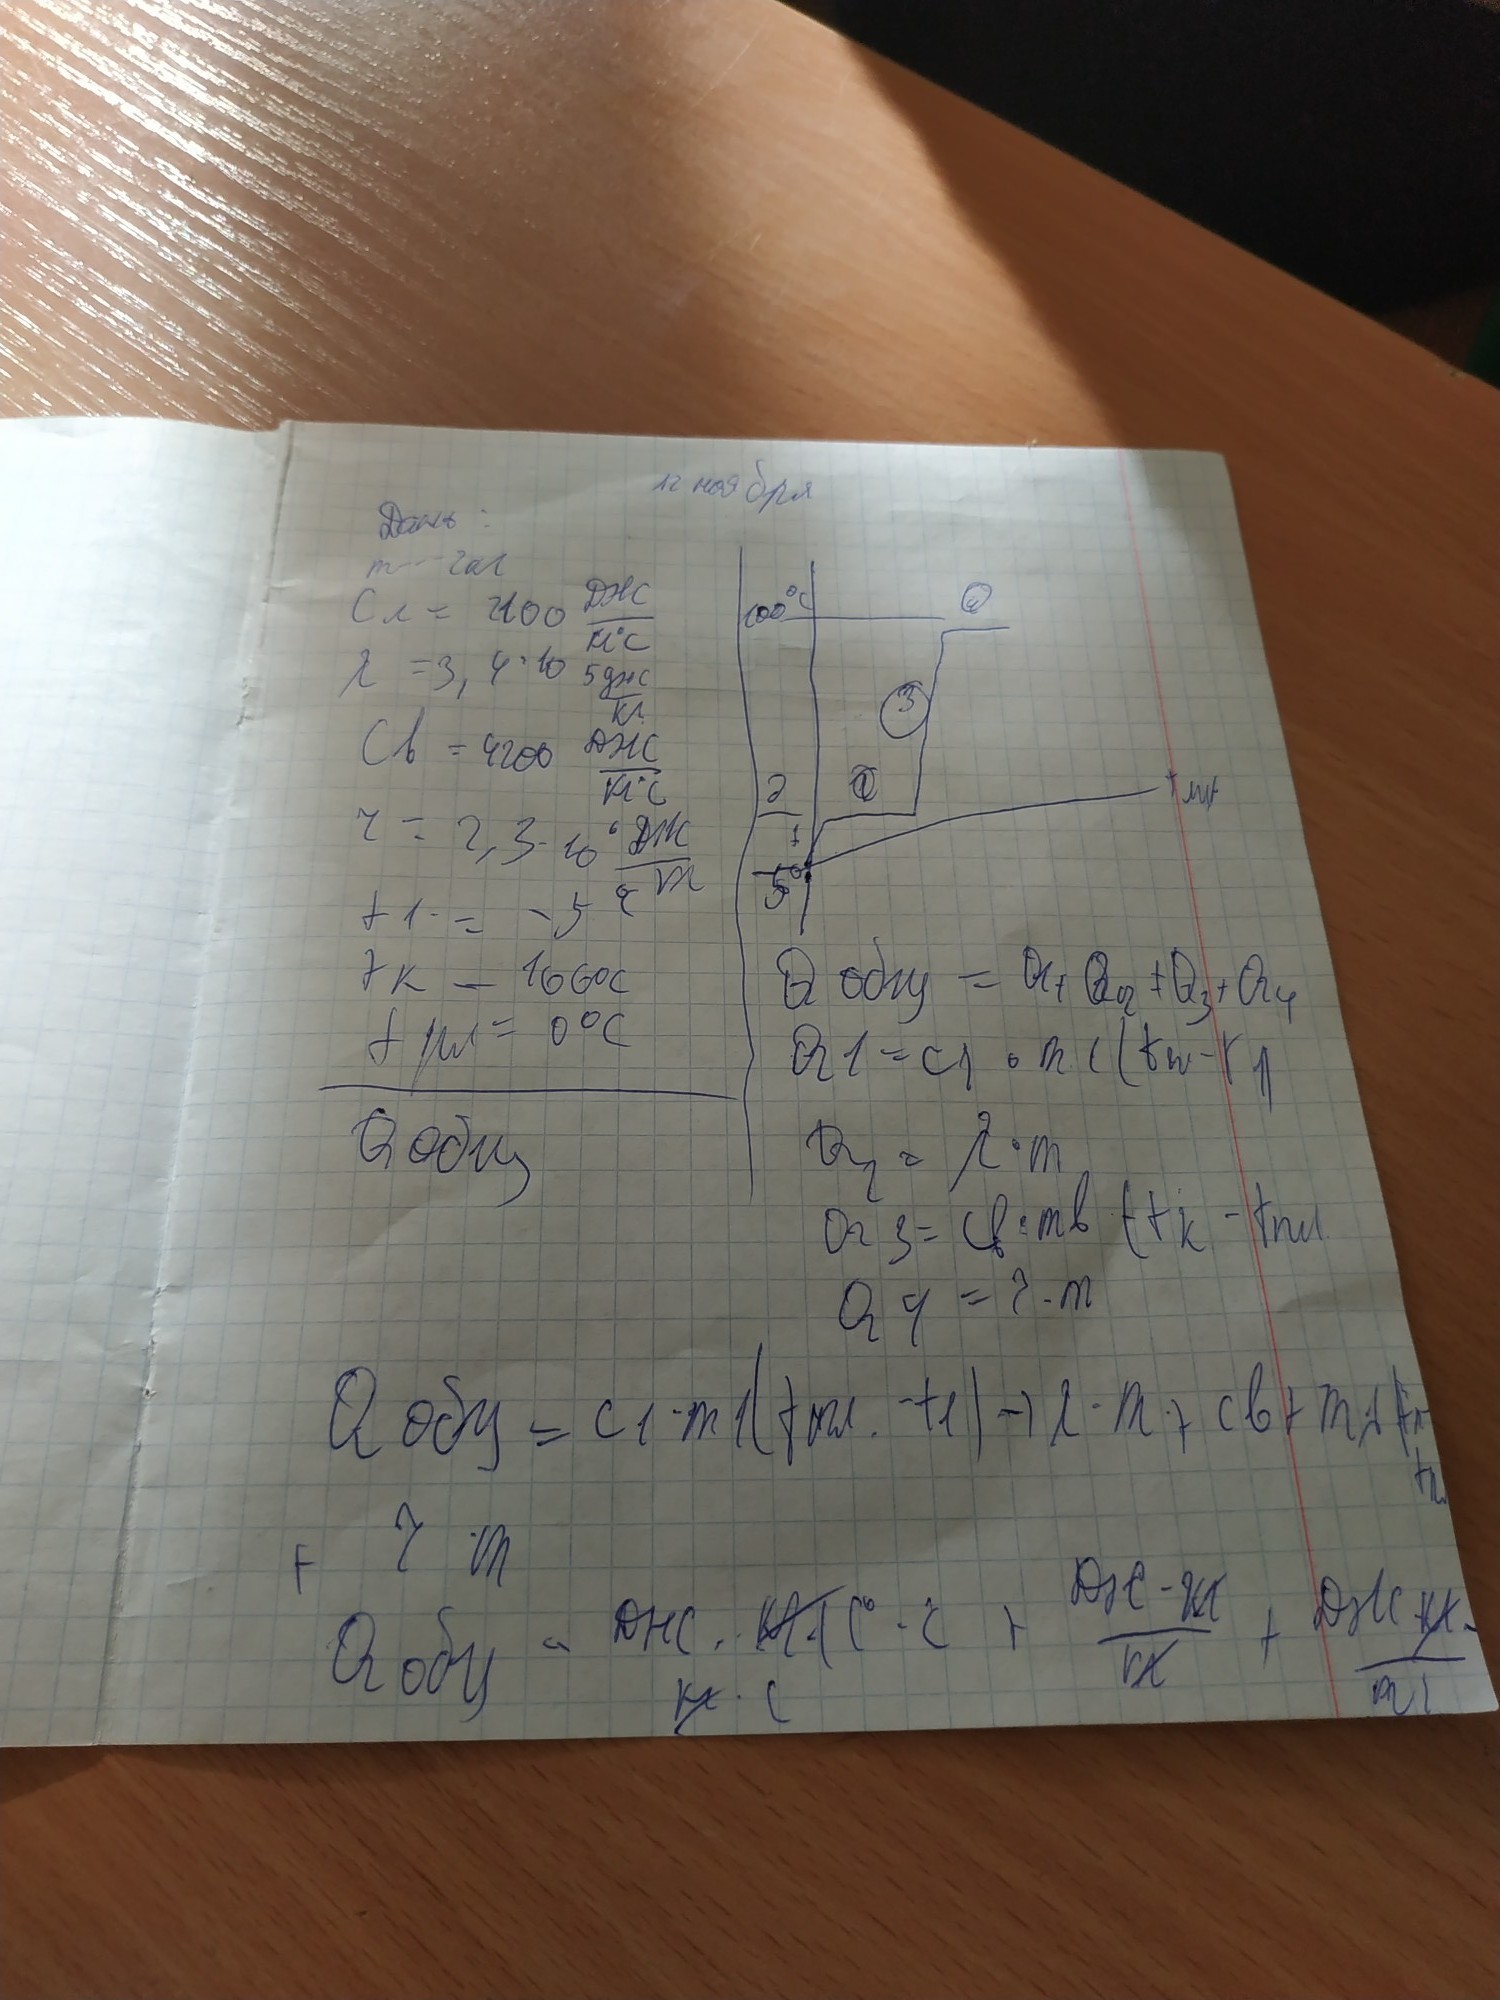 12 ноября
Дано:
m = 2 кг
Сл = 2100 Дж/кг°С
λ = 3,4·10 5 Дж/кг
Св = 4200 Дж/кг°С
r = 2,3·10⁶ Дж/кг
t1 = -5
tк = 100°С
tпл = 0°С
Qобщ
100°С
4
3
2
1
-5°
t, мин
Qобщ = Q1 + Q2 + Q3 + Q4
Q1 = сл · m (tпл - t1)
Q2 = λ · m
Q3 = св · mв (tк - tпл
Q4 = r · m
Qобщ = с1 · m1 (tпл. - t1) + λ · m + св + m
+ r · m
Qобщ = Дж · кг · С° / кг · С + Дж · кг / кг + Дж · кг ·